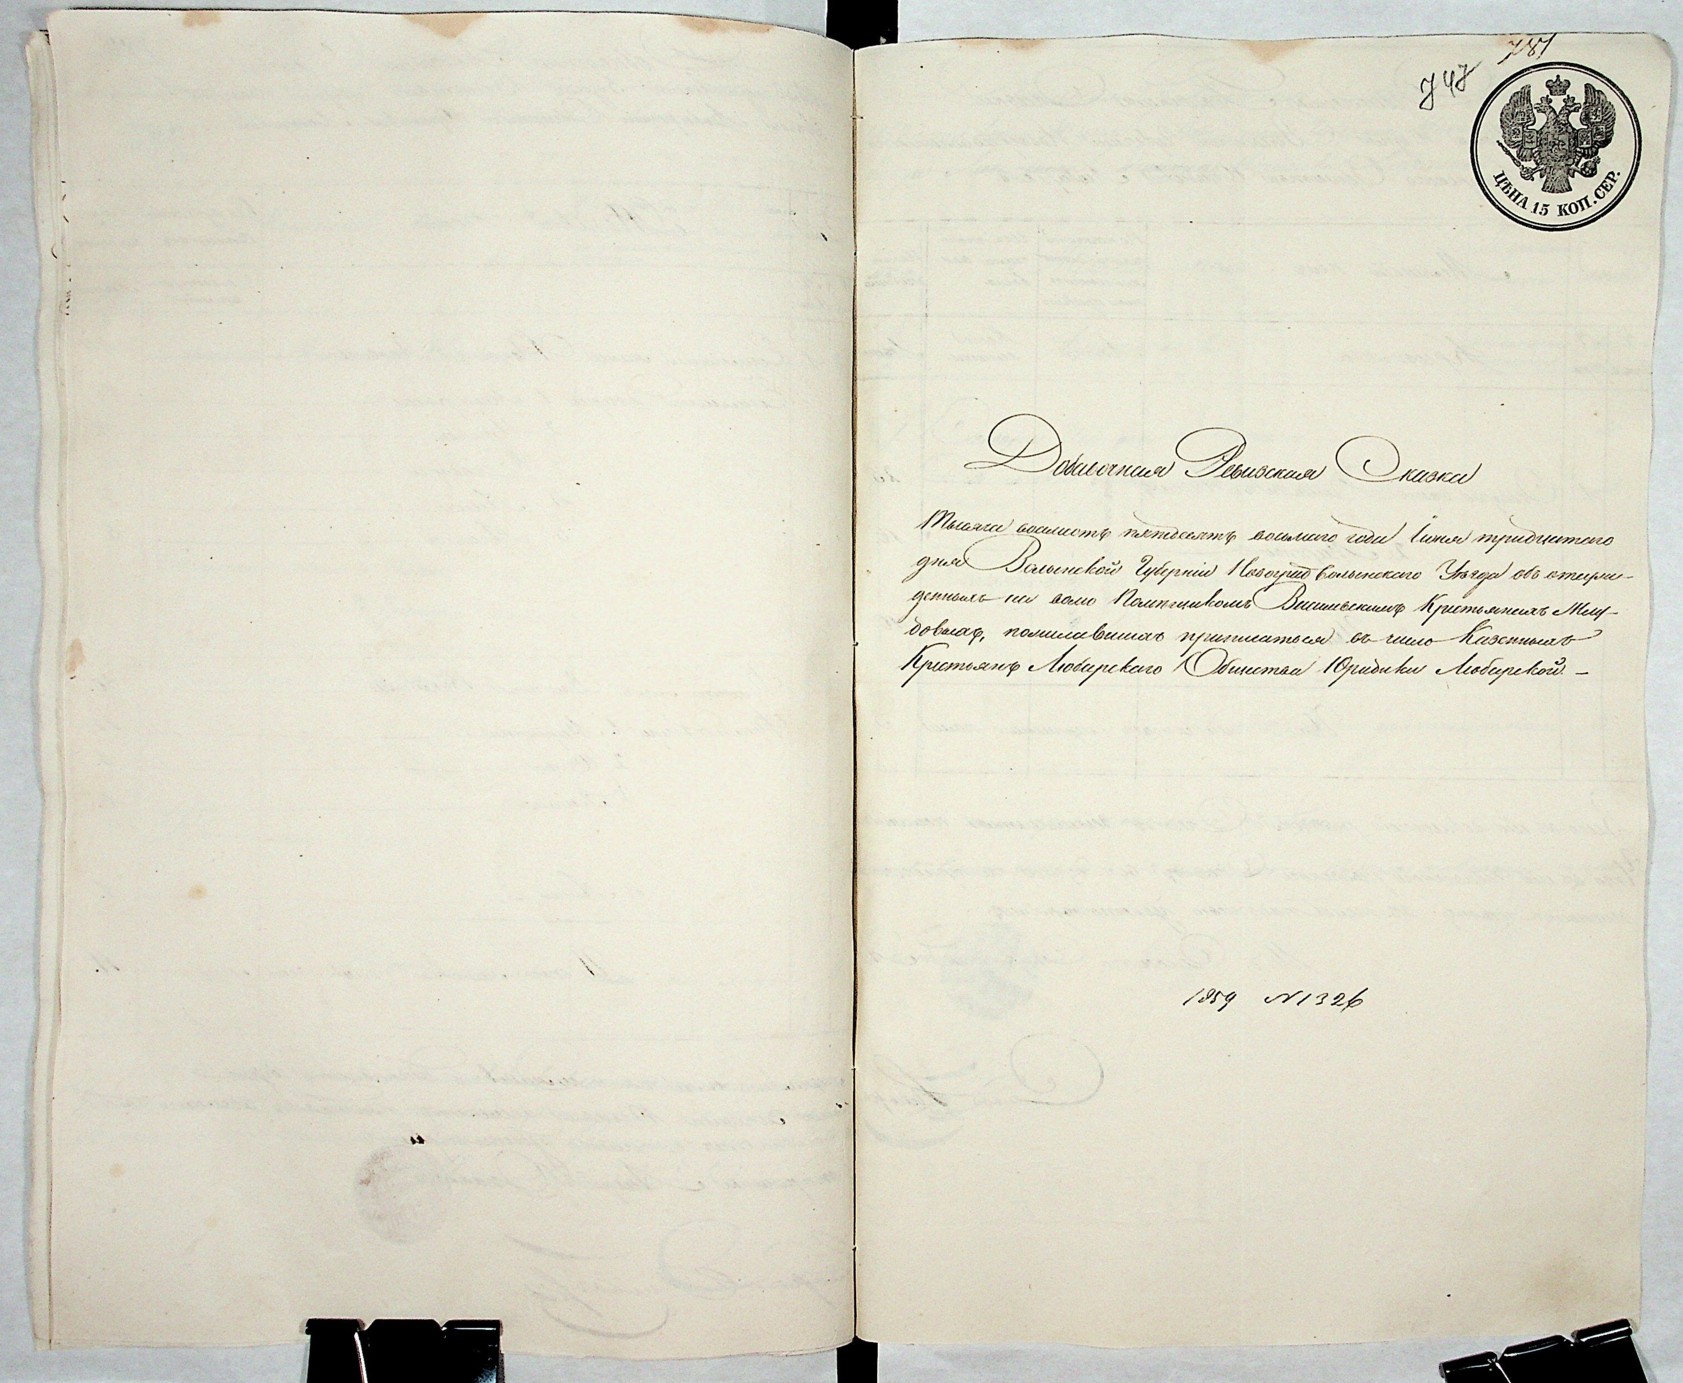 747 781
ЦѢНА 15 КОП. СЕР.
Добавочная Ревизская Сказка
Тысяча восемсотъ пятдесятъ восмаго года Iюня тридцатаго
дня Волынской Губернiи Новоградволынскаго Уезда объ отпу-
щенныхъ на волю Помещикомъ Крестьянахъ
пожелавшихъ приписаться въ число Казенныхъ
Крестьянъ Любарскаго Общества Юридики Любарской. —
1859 N 1326